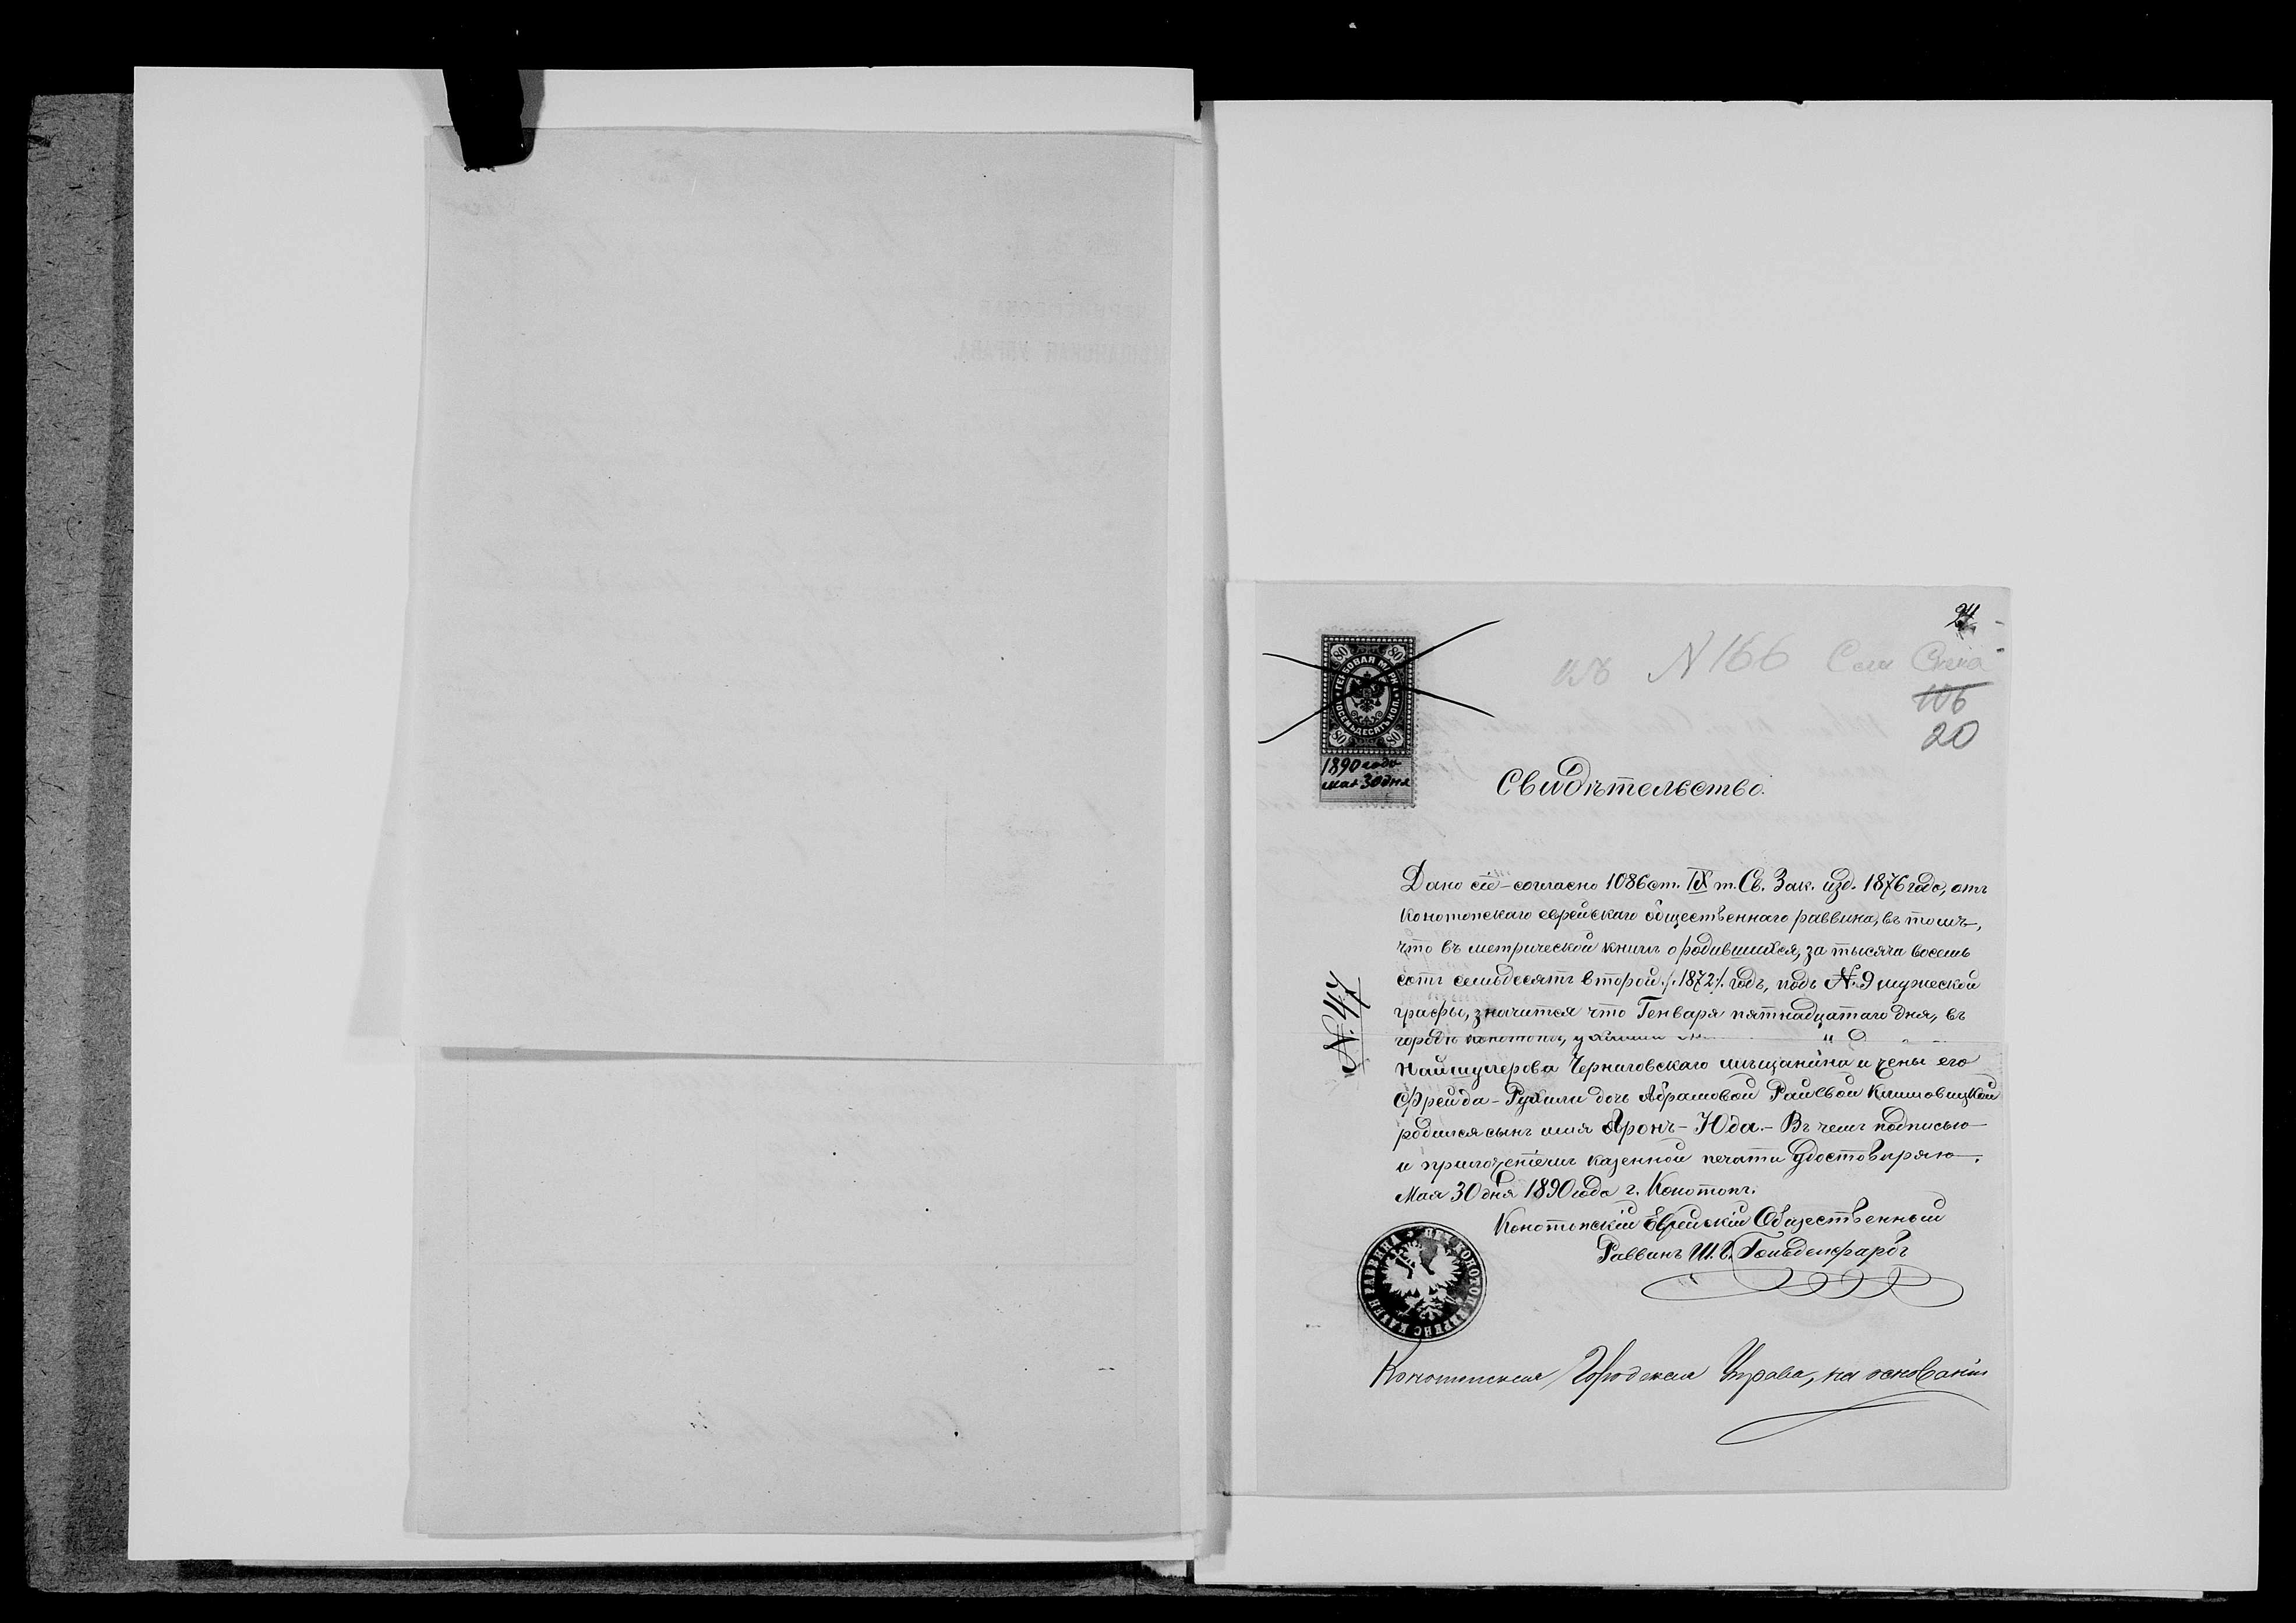 24
№ 166
106
20
80 80
ГЕРБОВАЯ МАРКА
ВОСЕМЬДЕСЯТЪ КОП.
80 80
1890 года
мая 30 дня
Свидѣтельство.
Дано сіе согласно 1086 ст. IX т. Св. Зак. изд. 1876 года, отъ
Конотопскаго еврейскаго общественнаго раввина, въ томъ,
что въ метрической книгѣ о родившихся, за тысяча восемь
сотъ семьдесятъ второй /.1872/. годъ, подъ №. 9 мужеской
графы, значится что Генваря пятнадцатаго дня, въ
городѣ Конотопѣ, у
Наймулерова Черниговскаго мѣщанина и жены его
Фрейда-Рухили дочь Абрамовой Раисвой Климовицкой
родился сынъ имя Аронъ-Юда. - Въ чемъ подписью
и приложеніемъ казенной печати удостовѣряю.
Мая 30 дня 1890 года г. Конотопъ.
Конотопскій Еврейскій Общественный
Раввинъ Ш. В. Гольденфарбъ
№. 47
Конотопская Городская Управа, на основаніи
УПРАВА.